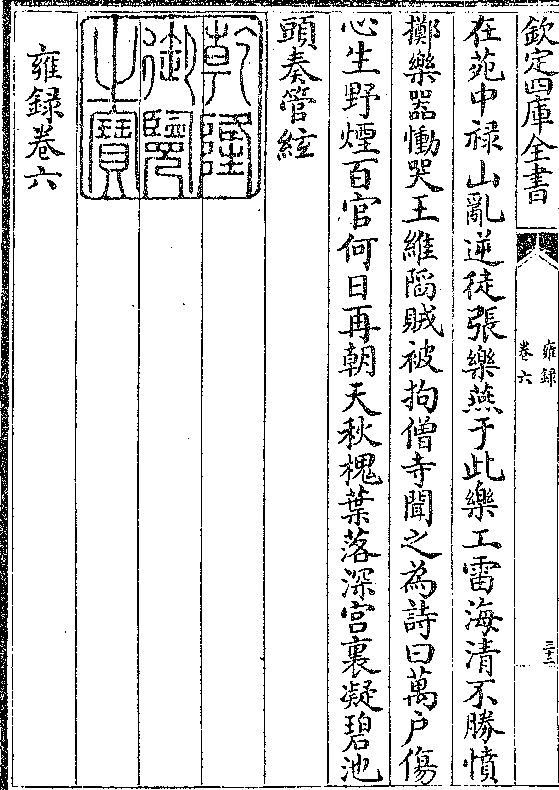 欽定四庫全書
雍録
卷六
三十二
在苑中禄山亂逆徒張樂燕于此樂工雷海清不勝憤
擲樂器慟哭王維陷賊被拘僧寺聞之為詩曰萬户傷
心生野煙百官何日再朝天秋槐葉落深宫裏凝碧池
頭奏管絃
乾隆
御覽
之寶
雍録卷六